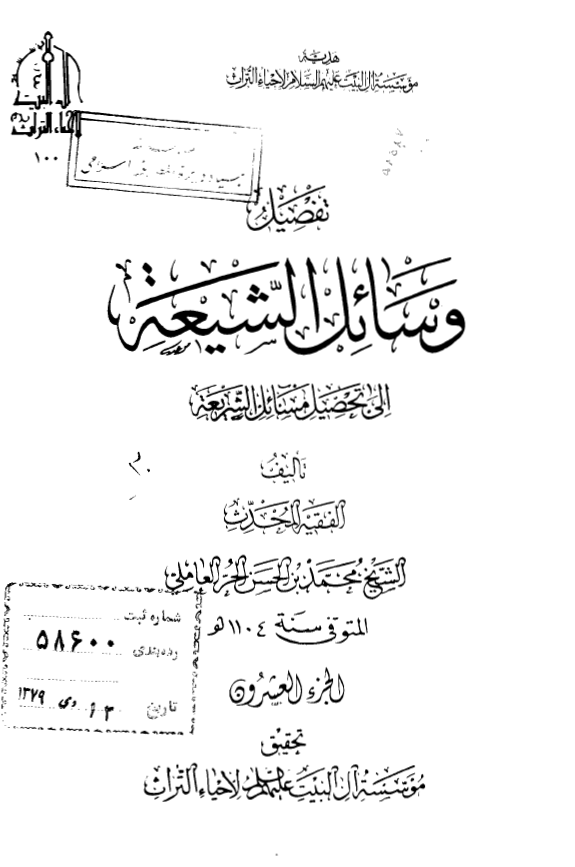 هدية
مؤسسة آل البيت عليهم السلام لإحياء التراث
آل البيت
لإحياء التراث
١٠٠
تفصيل
وسائل الشيعة
إلى تحصيل مسائل الشريعة
تأليف
الفقيه المحدث
الشيخ محمد بن الحسن الحر العاملي
المتوفى سنة ١١٠٤ هـ
الجزء العشرون
تحقيق
مؤسسة آل البيت عليهم السلام لإحياء التراث
شماره ثبت
۵۸۶۰۰
رده‌بندی
تاریخ
دی ۱۳۷۹